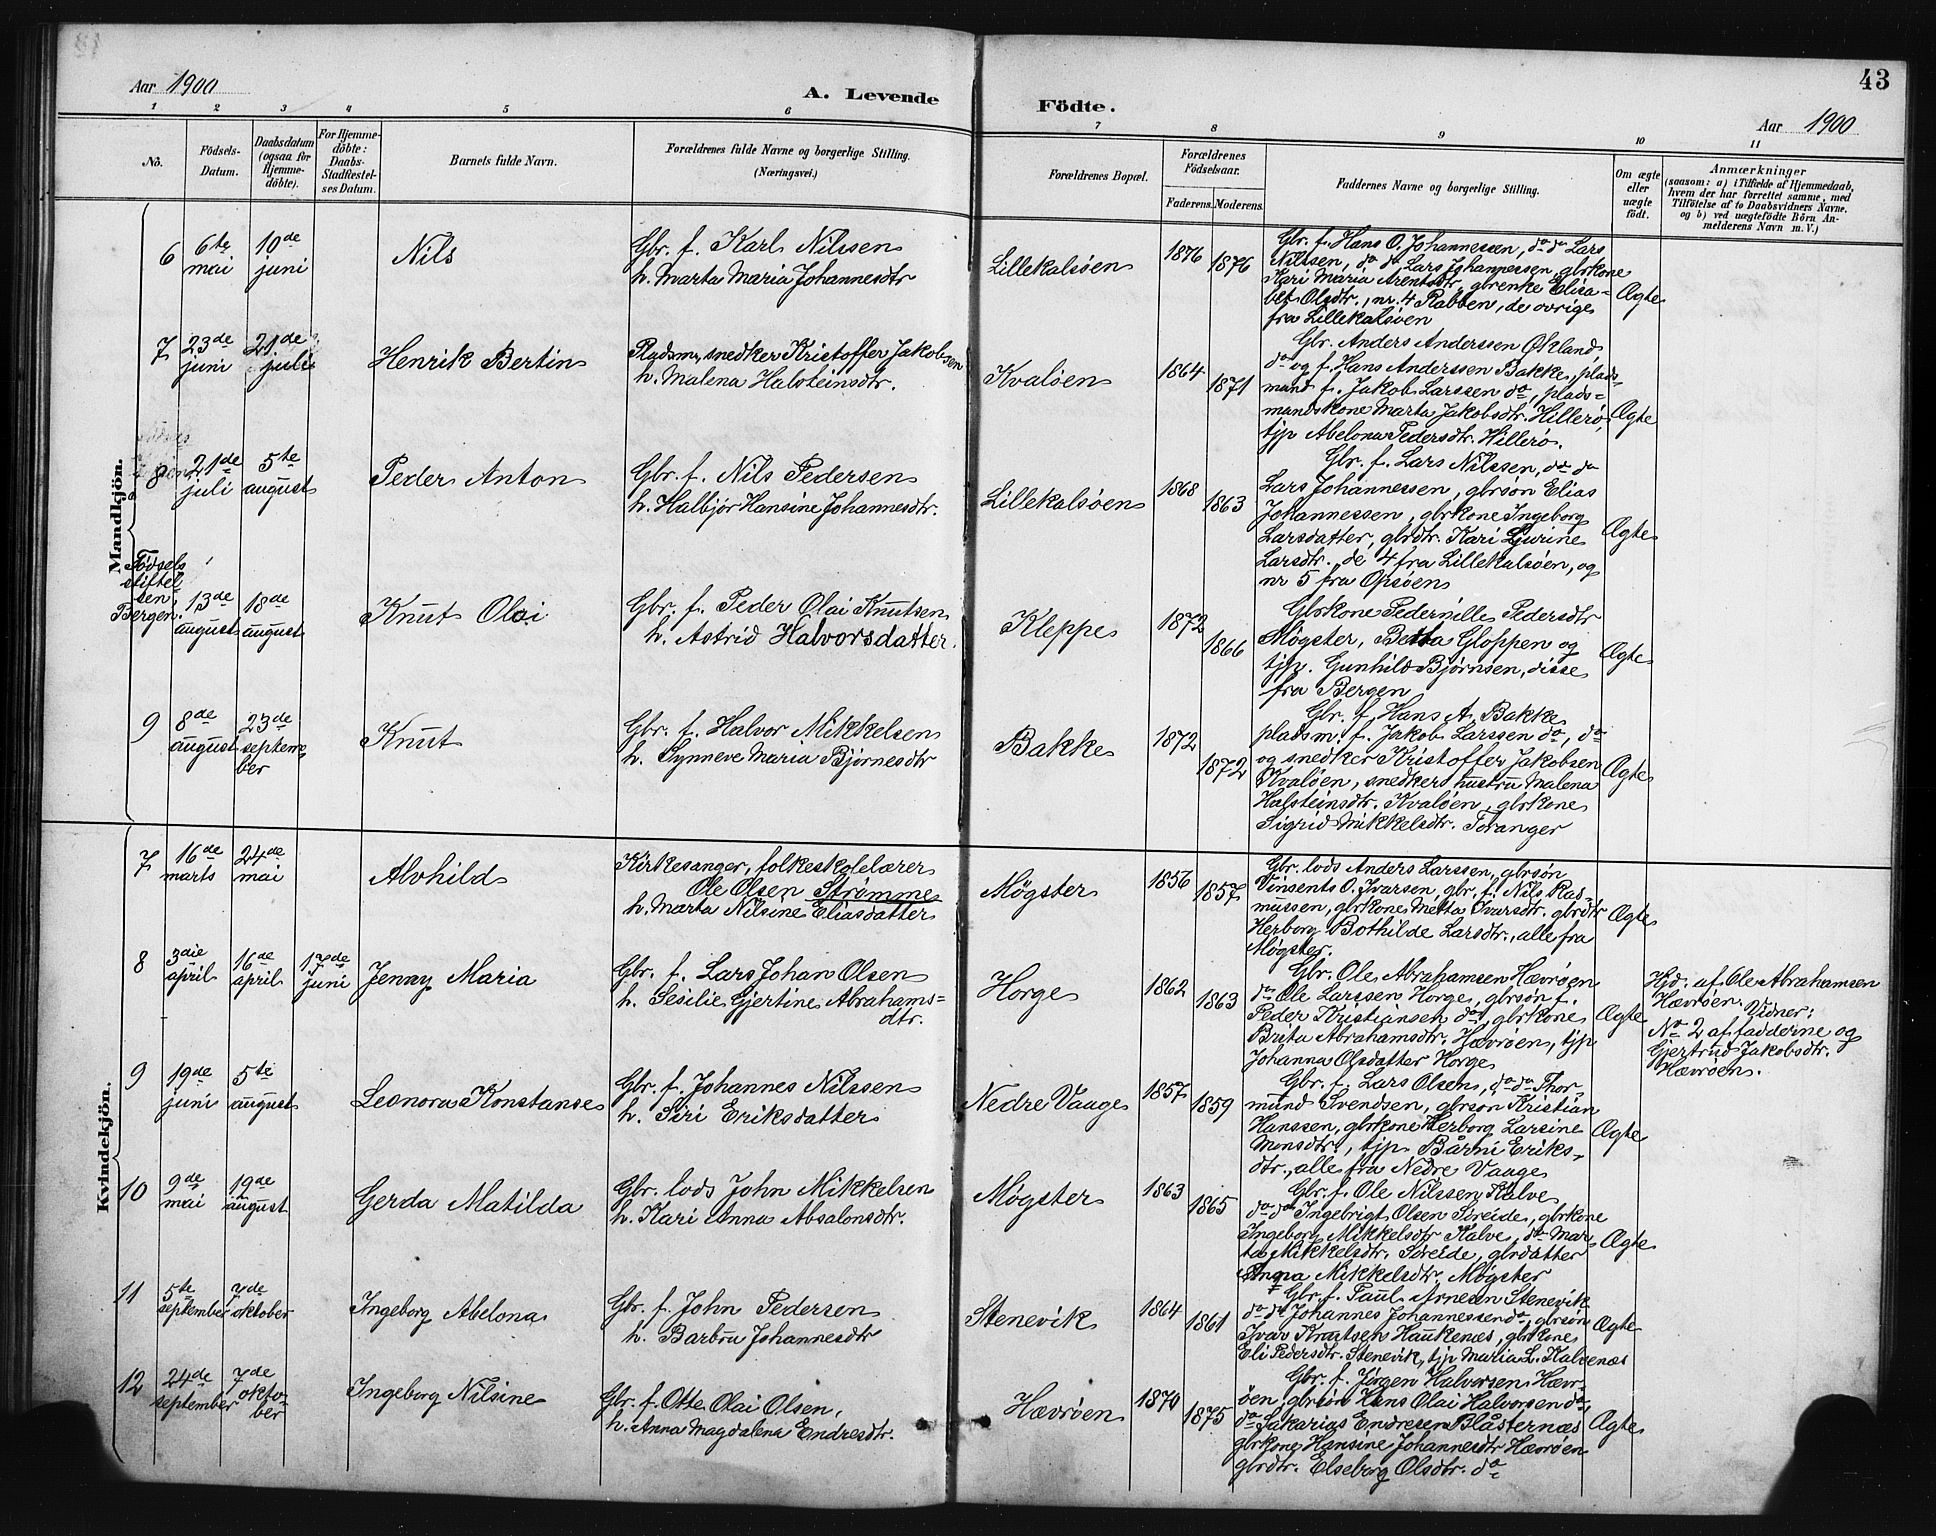 43
Aar 1900
A. Levende
Födte.
Aar 1900
1 2 3 4 5 6 7 8 9 10 11
No.
Födsels-
Datum.
Daabsdatum
(ogsaa for
Hjemme-
döbte).
For Hjemme-
döbte:
Daabs-
Stadfæstel-
ses Datum.
Barnets fulde Navn.
Forældrenes fulde Navne og borgerlige Stilling.
(Næringsvei.)
Forældrenes Bopæl.
Forældrenes
Födselsaar.
Faderens. Moderens.
Faddernes Navne og borgerlige Stilling.
Om ægte
eller
uægte
födt.
Anmærkninger
(saasom: a) i Tilfælde af Hjemmedaab,
hvem der har forrettet samme, med
Tilföielse af to Daabsvidners Navne,
og b) ved uægtefödte Börn An-
melderens Navn m. V.)
Mandkjön.
6
6te
mai
10de
juni
Nils
Gbr. f. Karl Nilssen
h. Marta Maria Johannesdtr
Lillekalsöen
1876
1876
Gbr. f. Hans O. Johannessen, do do Lars
Nilssen, do do Lars Johannessen, gbrkone
Kari Maria Arentsdtr, gbrenke Elisa-
bet Olsdtr., nr. 4 Rabben, de övrige
fra Lillekalsöen
Ægte
7
23de
juni
21de
juli
Henrik Bertin
Pladsm., snedker Kristoffer Jakobsen
h. Malena Halsteinsdtr.
Kvalöen
1864
1871
Gbr. Anders Anderssen Økland,
do og f. Hans Anderssen Bakke, plads-
mand f. Jakob Larssen do, plads-
mandskone Marta Jakobsdtr. Hillerö,
tjp Abelona Pedersdtr. Hillerö.
Ægte
8
21de
juli
5te
august
Peder Anton
Gbr. f. Nils Pedersen
h. Halbjör Hansine Johannesdtr.
Lillekalsöen
1868
1863
Gbr. f. Lars Nilssen, do do
Lars Johannessen, gbrsön Elias
Johannessen, gbrkone Ingeborg
Larsdatter, gbrdtr. Kari Ljurine
Larsdtr. de 4 fra Lillekalsöen, og
nr 5 fra Opsöen
Ægte
Födsels
stiftel
sen,
Bergen.
13de
august
18de
august
Knut Olai
Gbr. f. Peder Olai Knutsen
h. Astrid Halvorsdatter.
Kleppe
1872
1866
Gbrkone Pedernille Pedersdtr
Møgster, Betta Gloppen og
tjp. Gunhild Bjørnsen, disse
fra Bergen
Ægte
9
8de
august
23de
septem-
ber
Knut
Gbr. f. Halvor Mikkelsen
h. Synneve Maria Bjørnesdtr
Bakke
1872
1872
Gbr. f. Hans A. Bakke,
pladsm. f. Jakob Larssen do, do
og snedker Kristoffer Jakobsen
Kvalöen, snedkers hustru Malena
Halsteinsdtr. Kvalöen, gbrkone
Sigrid Mikkelsdtr. Toranger
Ægte
Kvindekjön.
7
16de
marts
24de
mai
Alvhild
Kirkesanger, folkeskolelærer
Ole Olsen Strømme
h. Marta Nilsine Eliasdatter
Møgster
1856
1857
Gbr. lods Anders Larssen, gbrsön
Vinsents O. Ivarsen, gbr. f. Nils Ras-
mussen, gbrkone Metta Ivarsdtr. gbrdtr
Herborg Bothilde Larsdtr., alle fra
Møgster.
Ægte
8
3die
april
16de
april
17de
juni
Jenny Maria
Gbr. f. Lars Johan Olsen
h. Sesilie Gjertine Abrahams-
dtr.
Horge
1862
1863
Gbr. Ole Abrahamsen Hævröen
do Ole Larssen Horge, gbrsön f.
Peder Kristiansen do, gbrkone
Brita Abrahamsdtr. Hævröen, tjp
Johanna Olsdatter Horge
Ægte
Hjd. af Ole Abrahamsen
Hævröen. Vidner:
No 2 af fadderne og
Gjertrud Jakobsdtr.
Hævröen.
9
19de
juni
5te
august
Leonora Konstanse
Gbr. f. Johannes Nilssen
h. Siri Eriksdatter
Nedre Vaage
1857
1859
Gbr. f. Lars Olsen, do do Thor-
mund Svendsen, gbrsön Kristian
Hanssen, gbrkone Herborg Larsine
Monsdtr., tjp. Bårni Eriks-
dtr., alle fra Nedre Vaage
Ægte
10
9de
mai
19de
august
Gerda Matilda
Gbr. lods John Mikkelsen
h. Kari Anna Absalonsdtr.
Møgster
1863
1865
Gbr. f. Ole Nilssen Kalve
do do Ingebrigt Olsen Søreide, gbrkone
Ingeborg Mikkelsdtr Kalve, do Mar-
ta Mikkelsdtr. Søreide, gbrdatter
Anna Mikkelsdtr. Møgster
Ægte
11
5te
september
7de
oktober
Ingeborg Abelona
Gbr. f. John Pedersen
h. Barbru Johannesdtr
Stenevik
1864
1861
Gbr. f. Paul Arnesen Stenevik
do do Johannes Johannessen do, gbrsön
Ivar Knutsen Haukenæs, gbrkone
Eli Pedersdtr. Stenevik, tjp Maria L. Kalvenæs
Ægte
12
24de
september
7de
okto-
ber
Ingeborg Nilsine
Gbr. f. Otto Olai Olsen,
h. Anna Magdalena Endresdtr.
Hævröen
1870
1875
Gbr. f. Jørgen Halvorsen Hævr-
öen, gbrsön Hans Olai Halvorsen do,
do Sakarias Endresen Blåsternæs
gbrkone Hansine Johannesdtr Hævröen
gbrdtr. Elseborg Olsdtr. do
Ægte